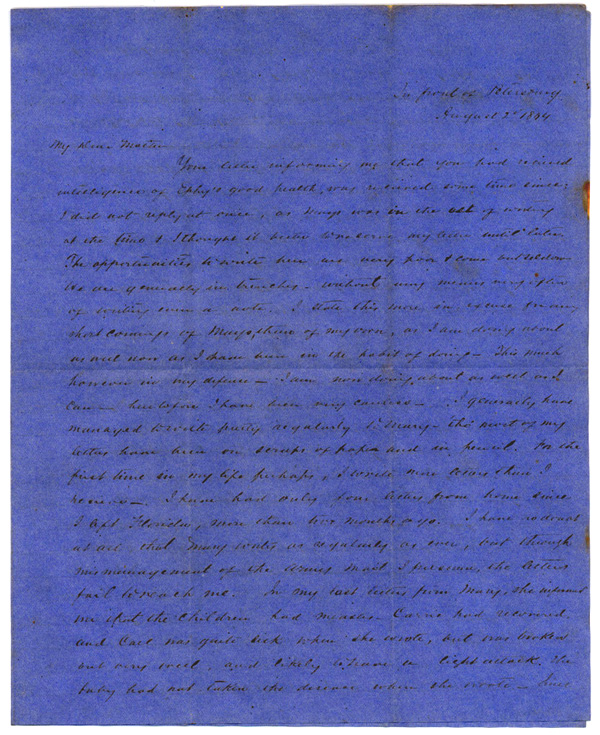 In front of Petersburg
August 2d 1864
My Dear Mother
Your letter informing me that you had received
intelligence of Eph's good health, was received some time since;
I did not reply at once, as Mayo was in the act of writing
at the time & I thought it better to reserve my letter until later
The opportunities to write here are very poor & come but seldom
We are generally in trenches - without any means
of writing even a note. I state this more in excuse for any
short comings of Mayo, than of my own, as I am doing about
as well now as I have been in the habit of doing - This much
however in my defense - I am now doing about as well as I
can - heretofore I have been very careless - I generally have
managed to write pretty regularly to Mary - tho' most of my
letters have been on scraps of paper and in pencil. For the
first time in my life perhaps, I write more letters than I
receive - I have had only four letters from home since
I left Florida, more than two months ago. I have no doubt
at all that Mary writes as regularly as ever, but through
mismanagement of the Army Mail I presume, the letters
fail to reach me. In my last letter from Mary, she informed
me that the children had measles Carrie had recovered
and was quite sick when she wrote, but was broken
out very well, and likely to have a light attack. The
baby had not taken the disease when she wrote - Since